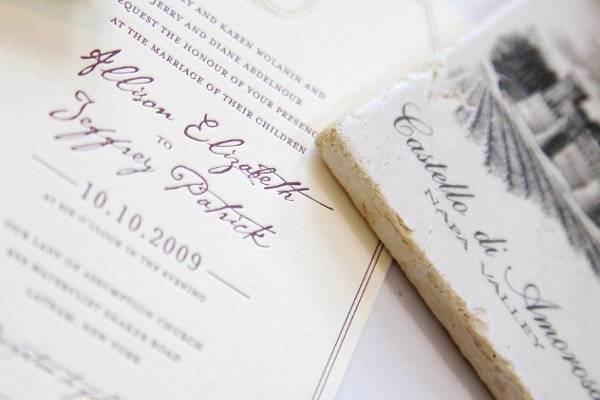 RY AND KAREN WOLANIN AND
JERRY AND DIANE ABDELNOUR
EQUEST THE HONOUR OF YOUR PRESENC
AT THE MARRIAGE OF THEIR CHILDREN
Allison Elizabeth
TO
Jeffrey Patrick
10.10.2009
AT SIX O'CLOCK IN THE EVENING
OUR LADY OF ASSUMPTION CHURCH
SHAKER ROAD
LATHAM, NEW YORK
Castello di Amorosa
NAPA VALLEY